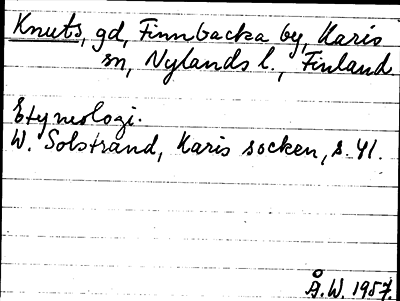 Knuts, gd, Finnbacka by, Karis
sn, Nylands l., Finland.
Etymologi.
W. Solstrand, Karis socken, s. 41.
Å.W. 1957.